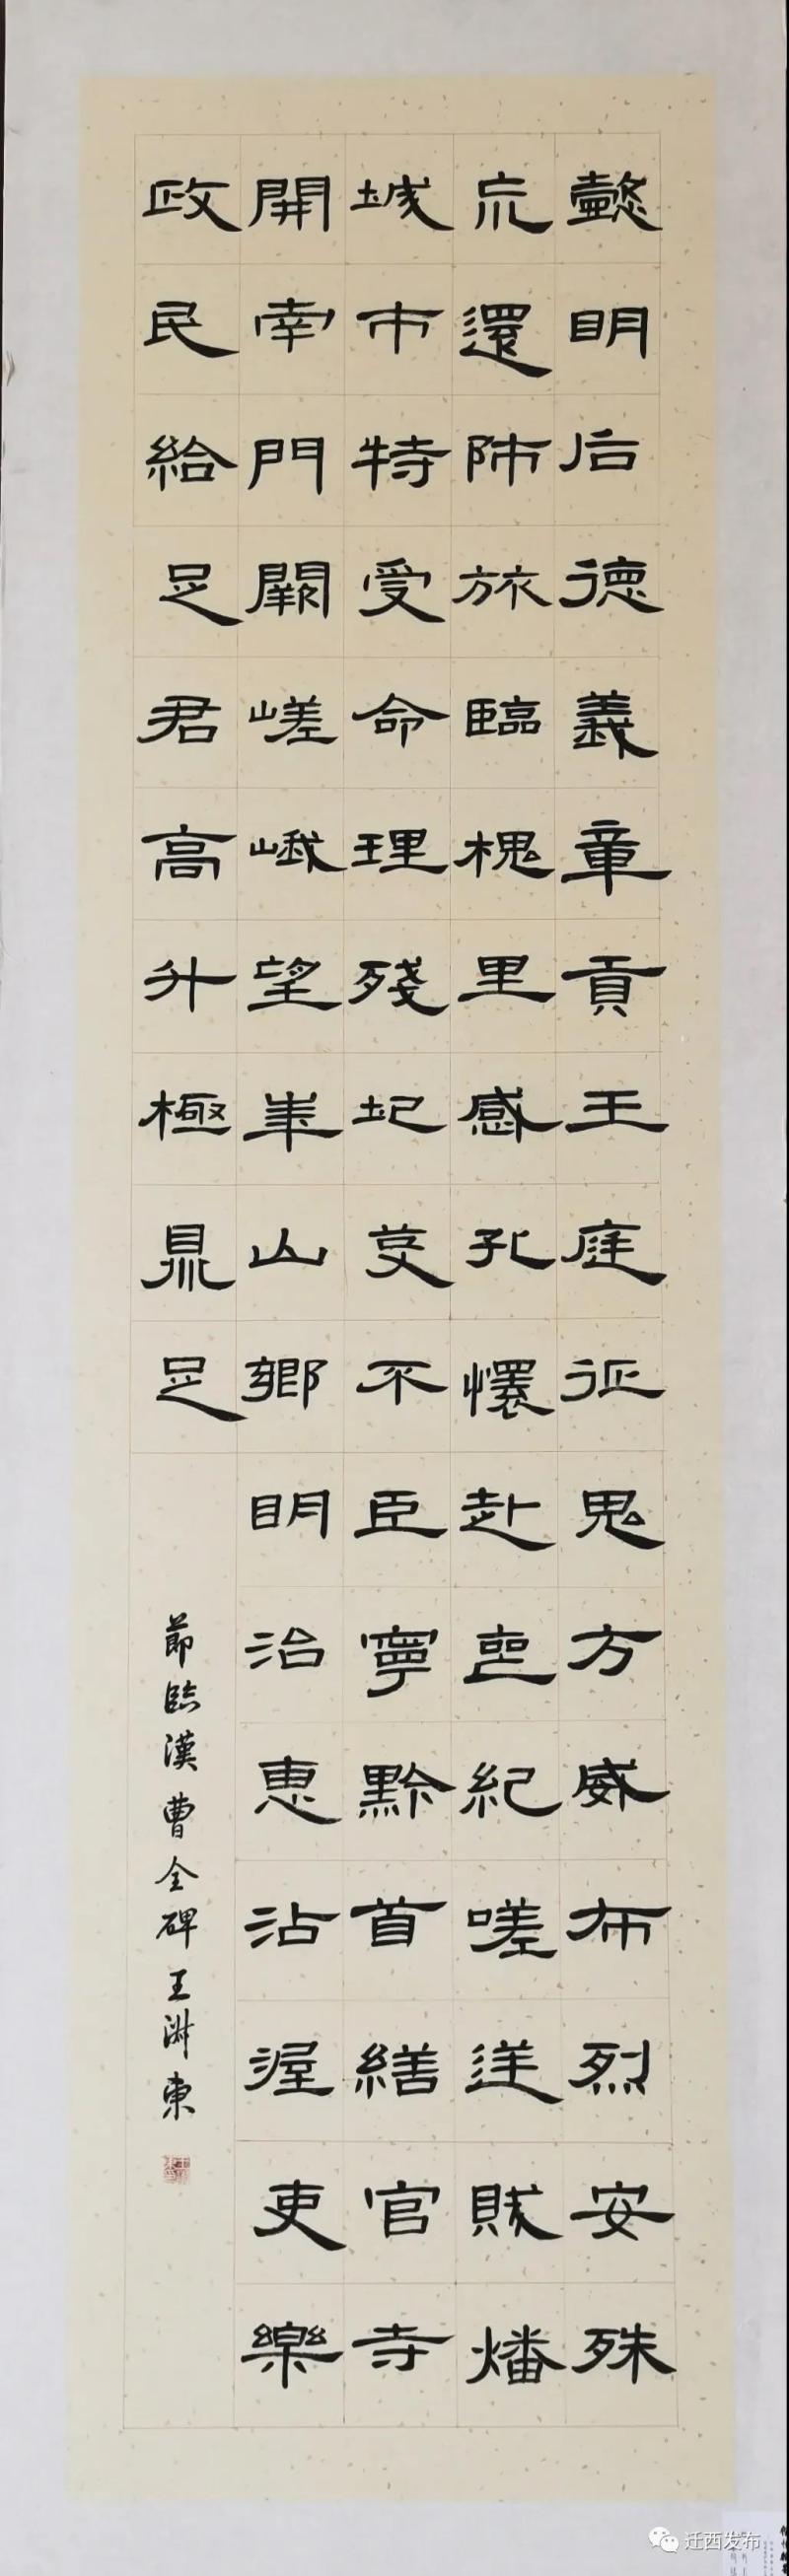 懿明后德義章貢王庭征鬼方威布烈安殊
巟還師旅臨槐里感孔懷赴喪紀嗟逆賊燔
城市特受命理殘圮芟不臣寧黔首繕官寺
開南門闕嵯峨望華山鄉明治惠沾渥吏樂
政民給足君高升極鼎足
節臨漢曹全碑王淋東
迁西发布